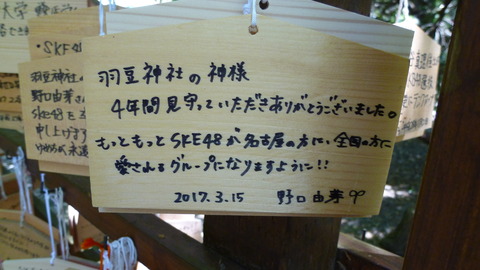 羽豆神社の神様
4年間見守っていただきありがとうございました。
もっともっとSKE48が名古屋の方に、全国の方に
愛されるグループになりますように!!
2017.3.15 野口由芽
・SKE48
羽豆神社の
野口由芽さん
SKE48を
申し上げます